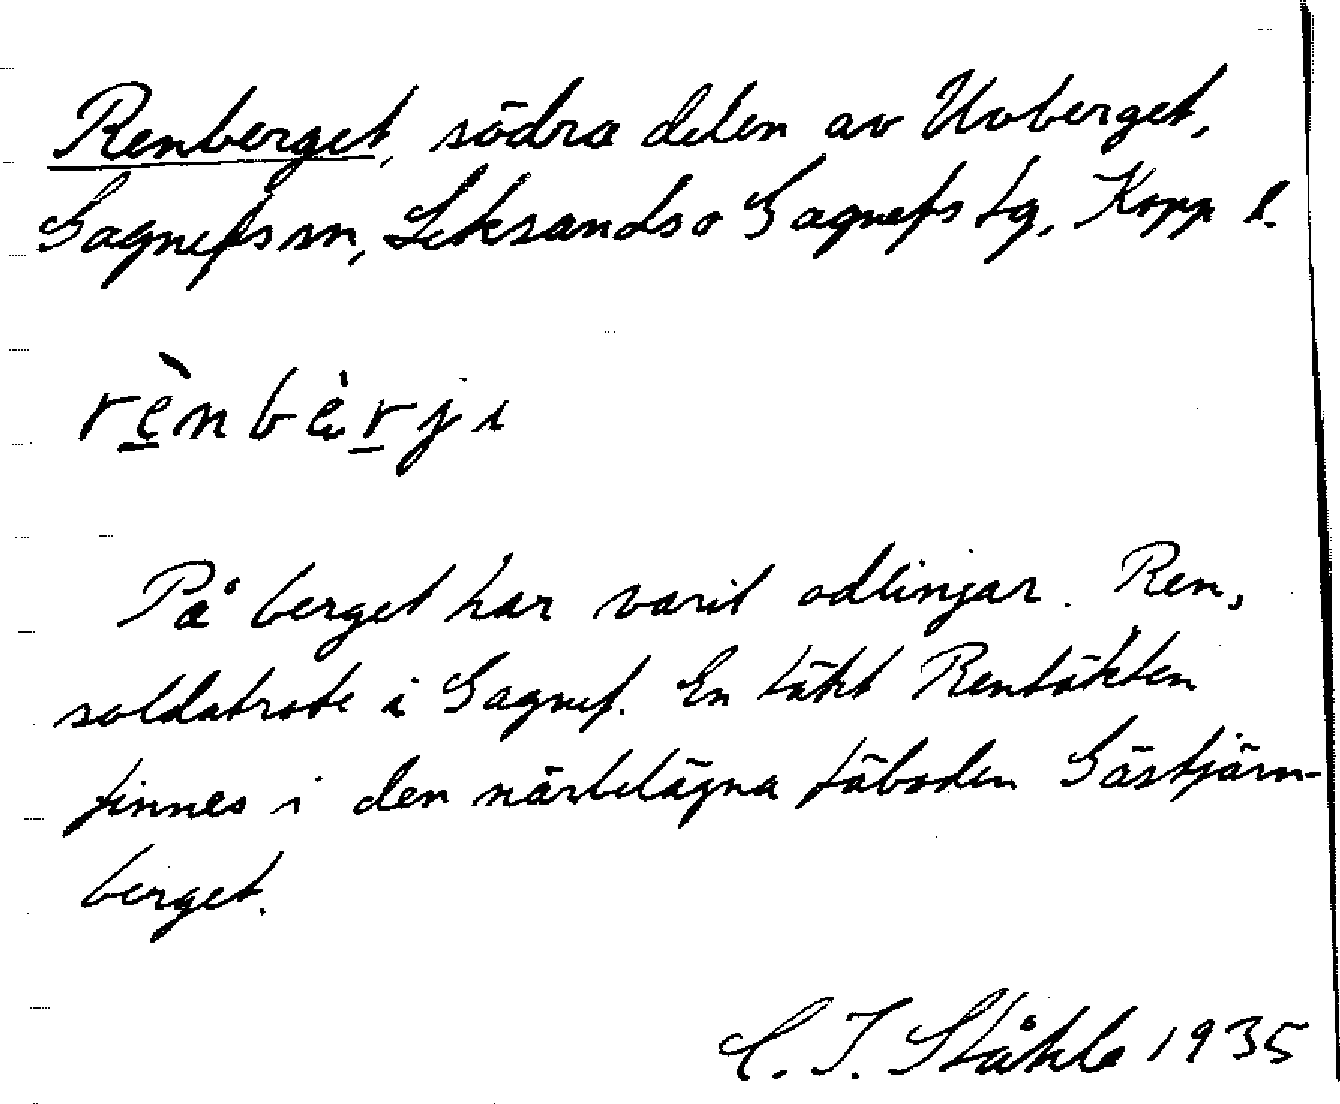 Renberget, södra delen av Uvberget,
Gagnefs sn, Leksands o Gagnefs tg, Kopp l.
rènbèrji
På berget har varit odlingar. Ren,
soldatrote i Gagnef. En täkt Rentäkten
finnes i den närbelägna fäboden Gästjärn-
berget.
C. I. Ståhle 1935